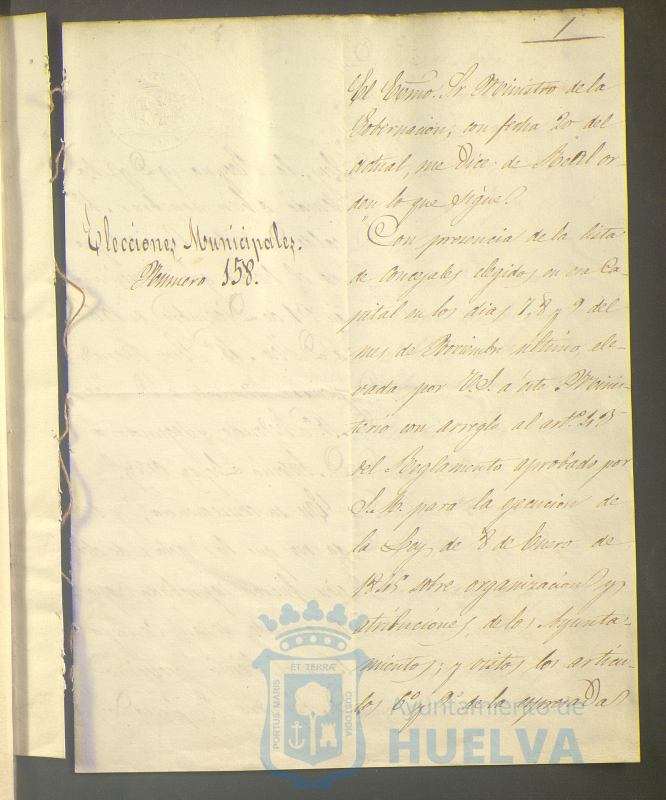 1
Elecciones Municipales.
Número 158.
El Exmo. Sr. Ministro de la
Gobernacion, con fecha 20 del
actual, me dice de Real or
den lo que sigue.
"Con presencia de la lista
de concejales elegidos en esa Ca
pital en los dias 7, 8 y 9 del
mes de Noviembre último, ele-
vada por V.S. á este Minis-
terio con arreglo al artº. 45
del Reglamento aprobado por
S.M. para la egecucion de
la Ley de 8 de Enero de
1845 sobre organizacion y
atribuciones de los Ayunta-
mientos; y vistos los artícu-
los 6º y 9º de la
ET TERRÆ
PORTUS MARIS
CUSTODIA
Ayuntamiento de
HUELVA